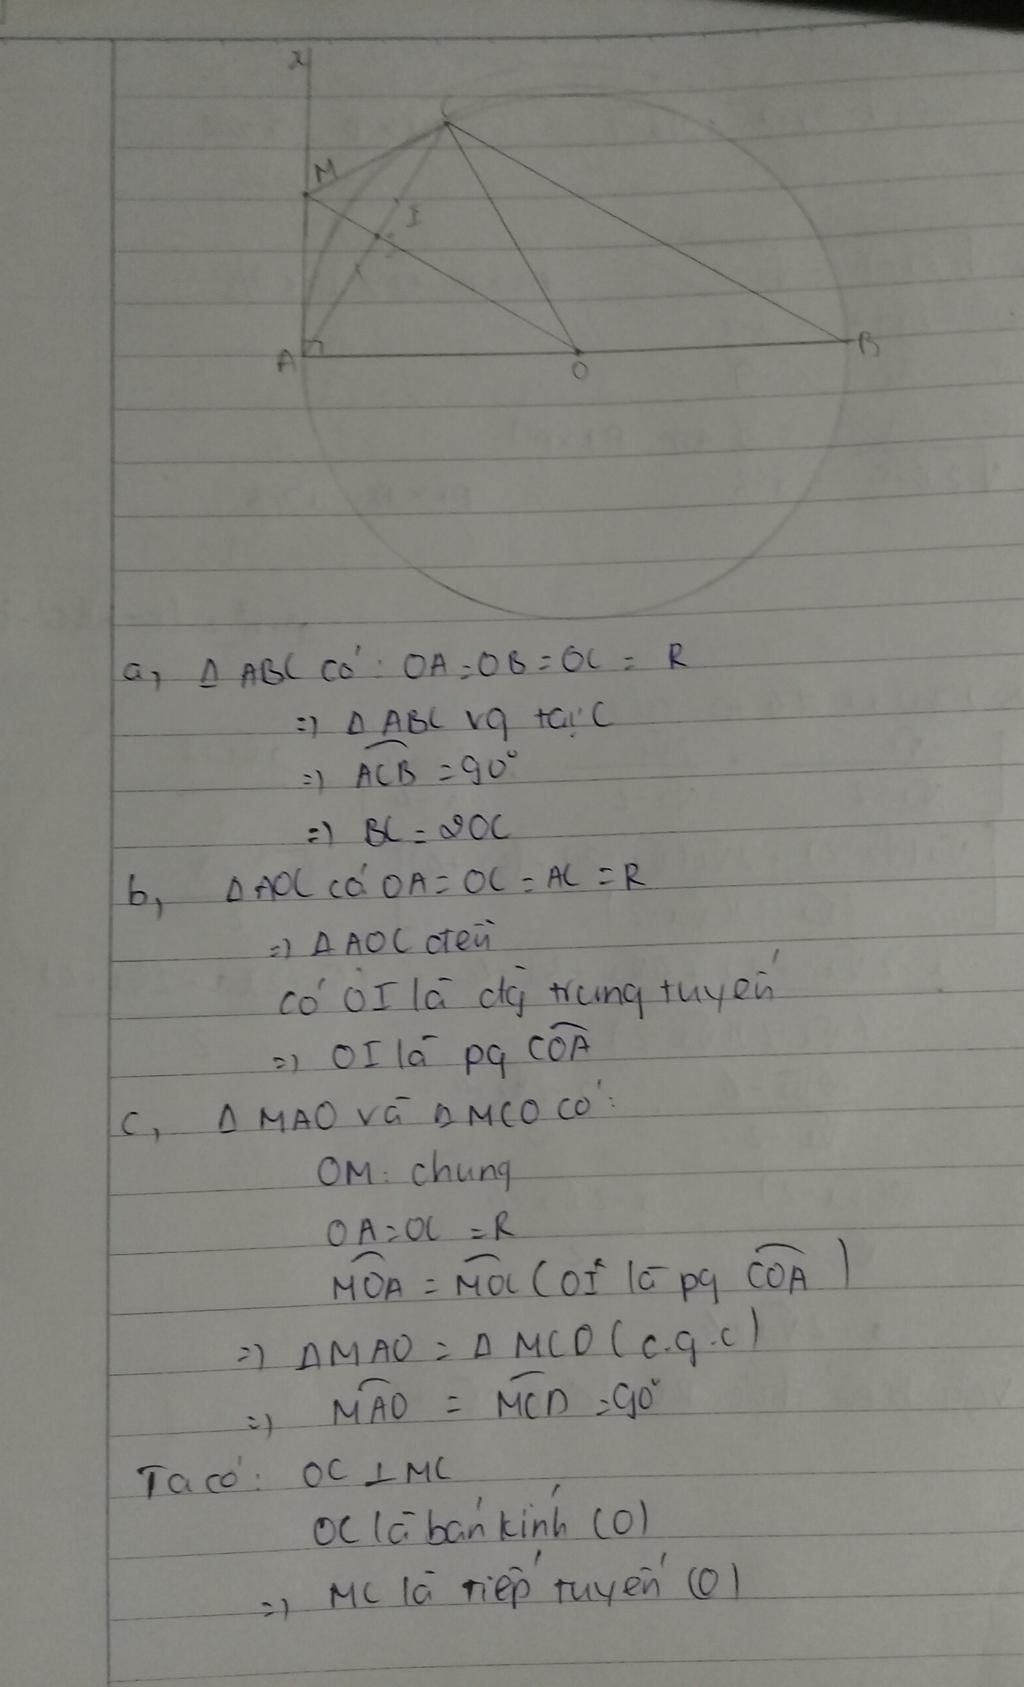 x
C
M
I
A
O
B
a, Δ ABC có: OA = OB = OC = R
=) Δ ABC vg tại C
=) ACB = 90°
=) BC = 2OC
b, Δ AOC có OA = OC = AC = R
=) Δ AOC đều
có OI là đg trung tuyến
=) OI là pg COA
c, Δ MAO và Δ MCO có:
OM: chung
OA = OC = R
MOA = MOC (OI là pg COA)
=) Δ MAO = Δ MCO (c.g.c)
=) MAO = MCO = 90°
Ta có: OC ⊥ MC
OC là bán kính (O)
=) MC là tiếp tuyến (O)